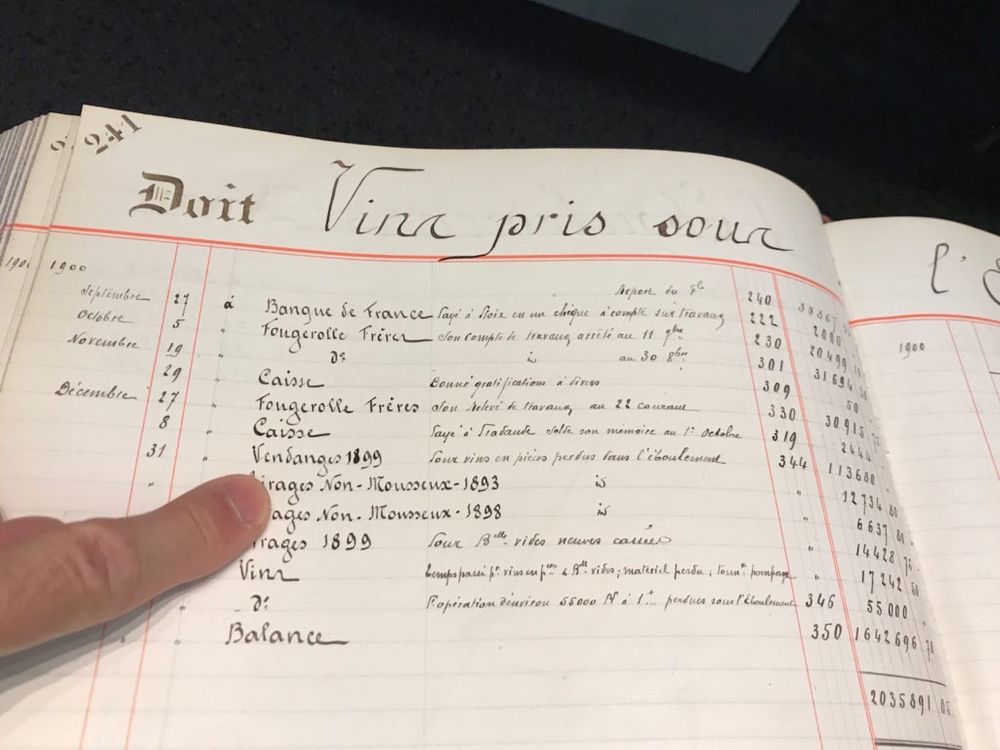 241
Doit Vins pris sous
l'
1900
1900
Report du fo 240
Septembre 27 à Banque de France Payé à Roix en un chèque à compte sur travaux 222 2000
Octobre 5 " Fougerolle Frères Son compte de travaux arrêté au 11 7bre 230 20499
Novembre 19 " do is au 30 8bre 301 31694
29 " Caisse Donné gratifications à divers 309 50
Décembre 27 " Fougerolle Frères Son relevé de travaux au 22 courant 330 30915
8 " Caisse Payé à Tradaude solde son mémoire au 1er Octobre 319 2444
31 " Vendanges 1899 Pour vins en pièces perdus dans l'éboulement 344 113680
" irages Non-Mousseux-1893 is " 12734 80
ages Non-Mousseux-1898 is " 6637 80
rages 1899 Pour Blles vides neuves cassées " 14428
Vins vins en & Blles vides; matériel perdu; pompage " 17242 50
" do l'opération d'environ 55000 à perdues sous l'éboulement 346 55000 "
" " Balance 350 1642696 70
2035891 05